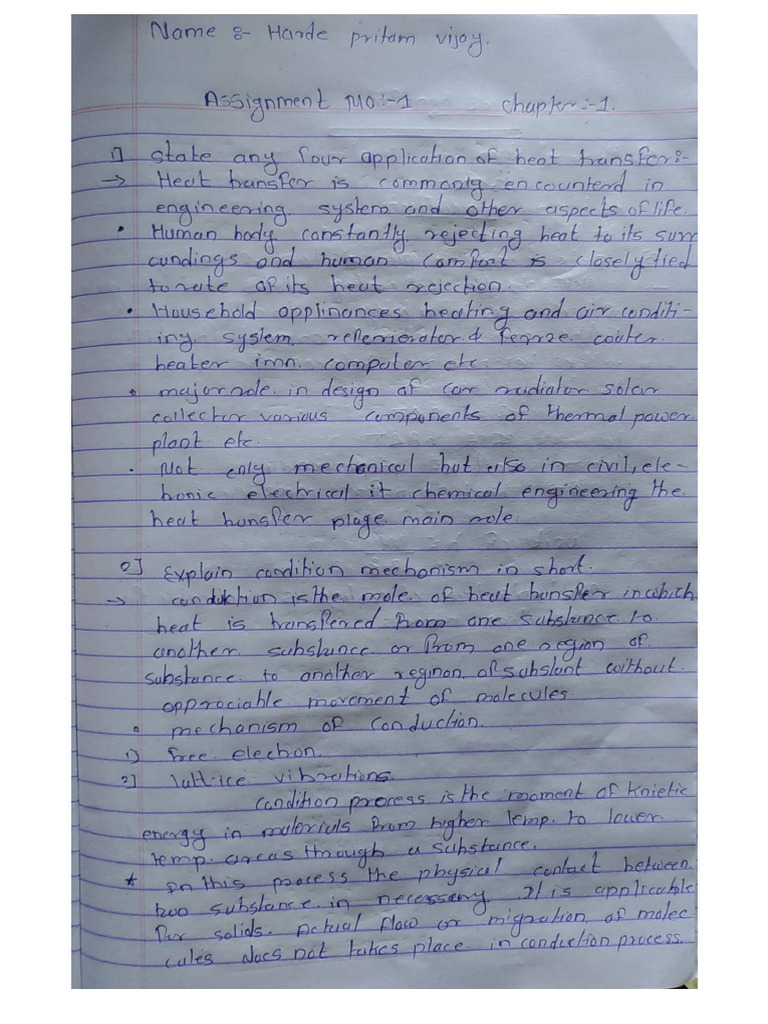 Name :- Harde pritam vijay.
Assignment No:-1 chapter:-1.
1] state any four application of heat transfer:-
→ Heat transfer is commonly encounterd in
engineering system and other aspects of life.
• Human body constantly rejecting heat to its surr
oundings and human comfort is closely tied
to rate of its heat rejection.
• Household applinances heating and air conditi-
ing system, & cooter.
heater computer etc.
• major role in design of car radiator solar
collector various components of thermal power
plant etc.
• Not only mechanical but also in civil, ele-
tronic electrical it chemical engineering the
heat transfer plage main role.
2] Explain condition mechanism in short.
→ conduktion is the mole of heat transfer in which
heat is transfered from one substance to
another substance or from one region of
substance to another reginon of substant without
approciable movement of molecules
• mechanism of conduction.
1) free electron.
2] lattice vibrations.
condition process is the moment of knietic
energy in materials from higher temp. to lower
temp. areas through a substance.
* In this process the physical contact between
two substance in necessary. It is applicable
for solids. Actual flow or migration of molec
cules does not takes place in conduction process.